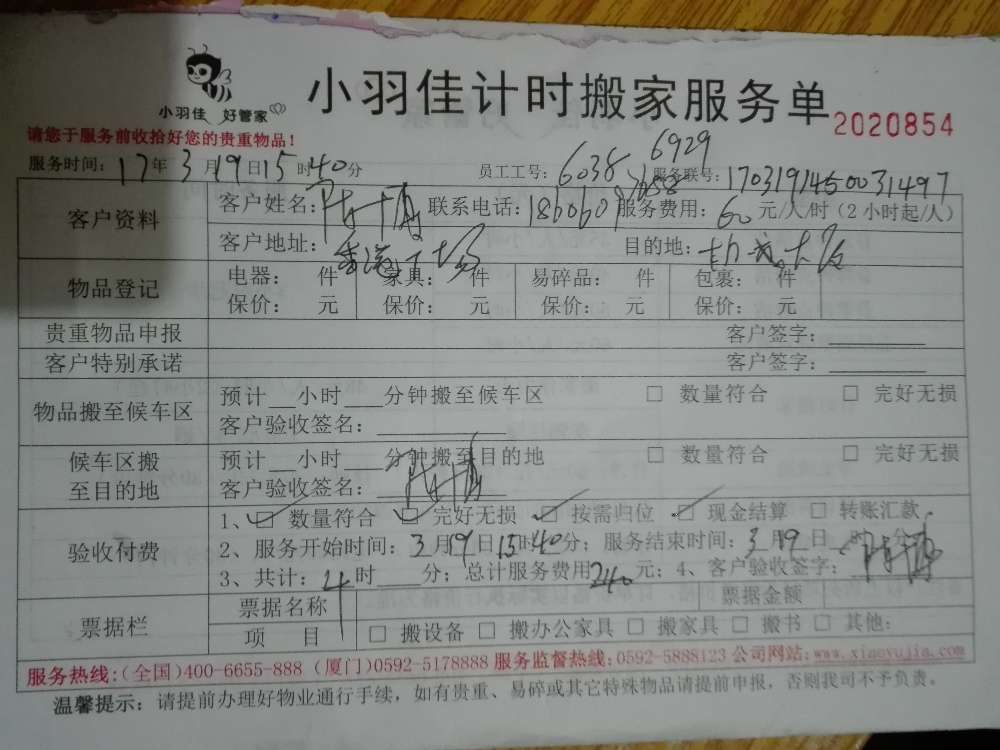 小羽佳 好管家
小羽佳计时搬家服务单
2020854
请您于服务前收拾好您的贵重物品！
服务时间：17年3月19日15时40分 员工工号：6038 6929 服务联号：1703191450031497
客户资料 客户姓名： 联系电话： 服务费用：60元/人/时（2小时起/人）
客户地址： 目的地：
物品登记 电器： 件 家具： 件 易碎品： 件 包裹： 件
保价： 元 保价： 元 保价： 元 保价： 元
贵重物品申报 客户签字：
客户特别承诺 客户签字：
物品搬至候车区 预计__小时___分钟搬至候车区 □ 数量符合 □ 完好无损
客户验收签名：
候车区搬至目的地 预计__小时___分钟搬至目的地 □ 数量符合 □ 完好无损
客户验收签名：
验收付费 1、☑ 数量符合 ☑ 完好无损 ☑ 按需归位 ☑ 现金结算 □ 转账汇款
2、服务开始时间：3月19日15时40分；服务结束时间：3月19日 时 分
3、共计：4时____分；总计服务费用240元；4、客户验收签字：
票据栏 票据名称 票据金额
项 目 □ 搬设备 □ 搬办公家具 □ 搬家具 □ 搬书 □ 其他：
服务热线：（全国）400-6655-888（厦门）0592-5178888 服务监督热线：0592-5888123 公司网站：www.xiaoyujia.com
温馨提示：请提前办理好物业通行手续，如有贵重、易碎或其它特殊物品请提前申报，否则我司不予负责。